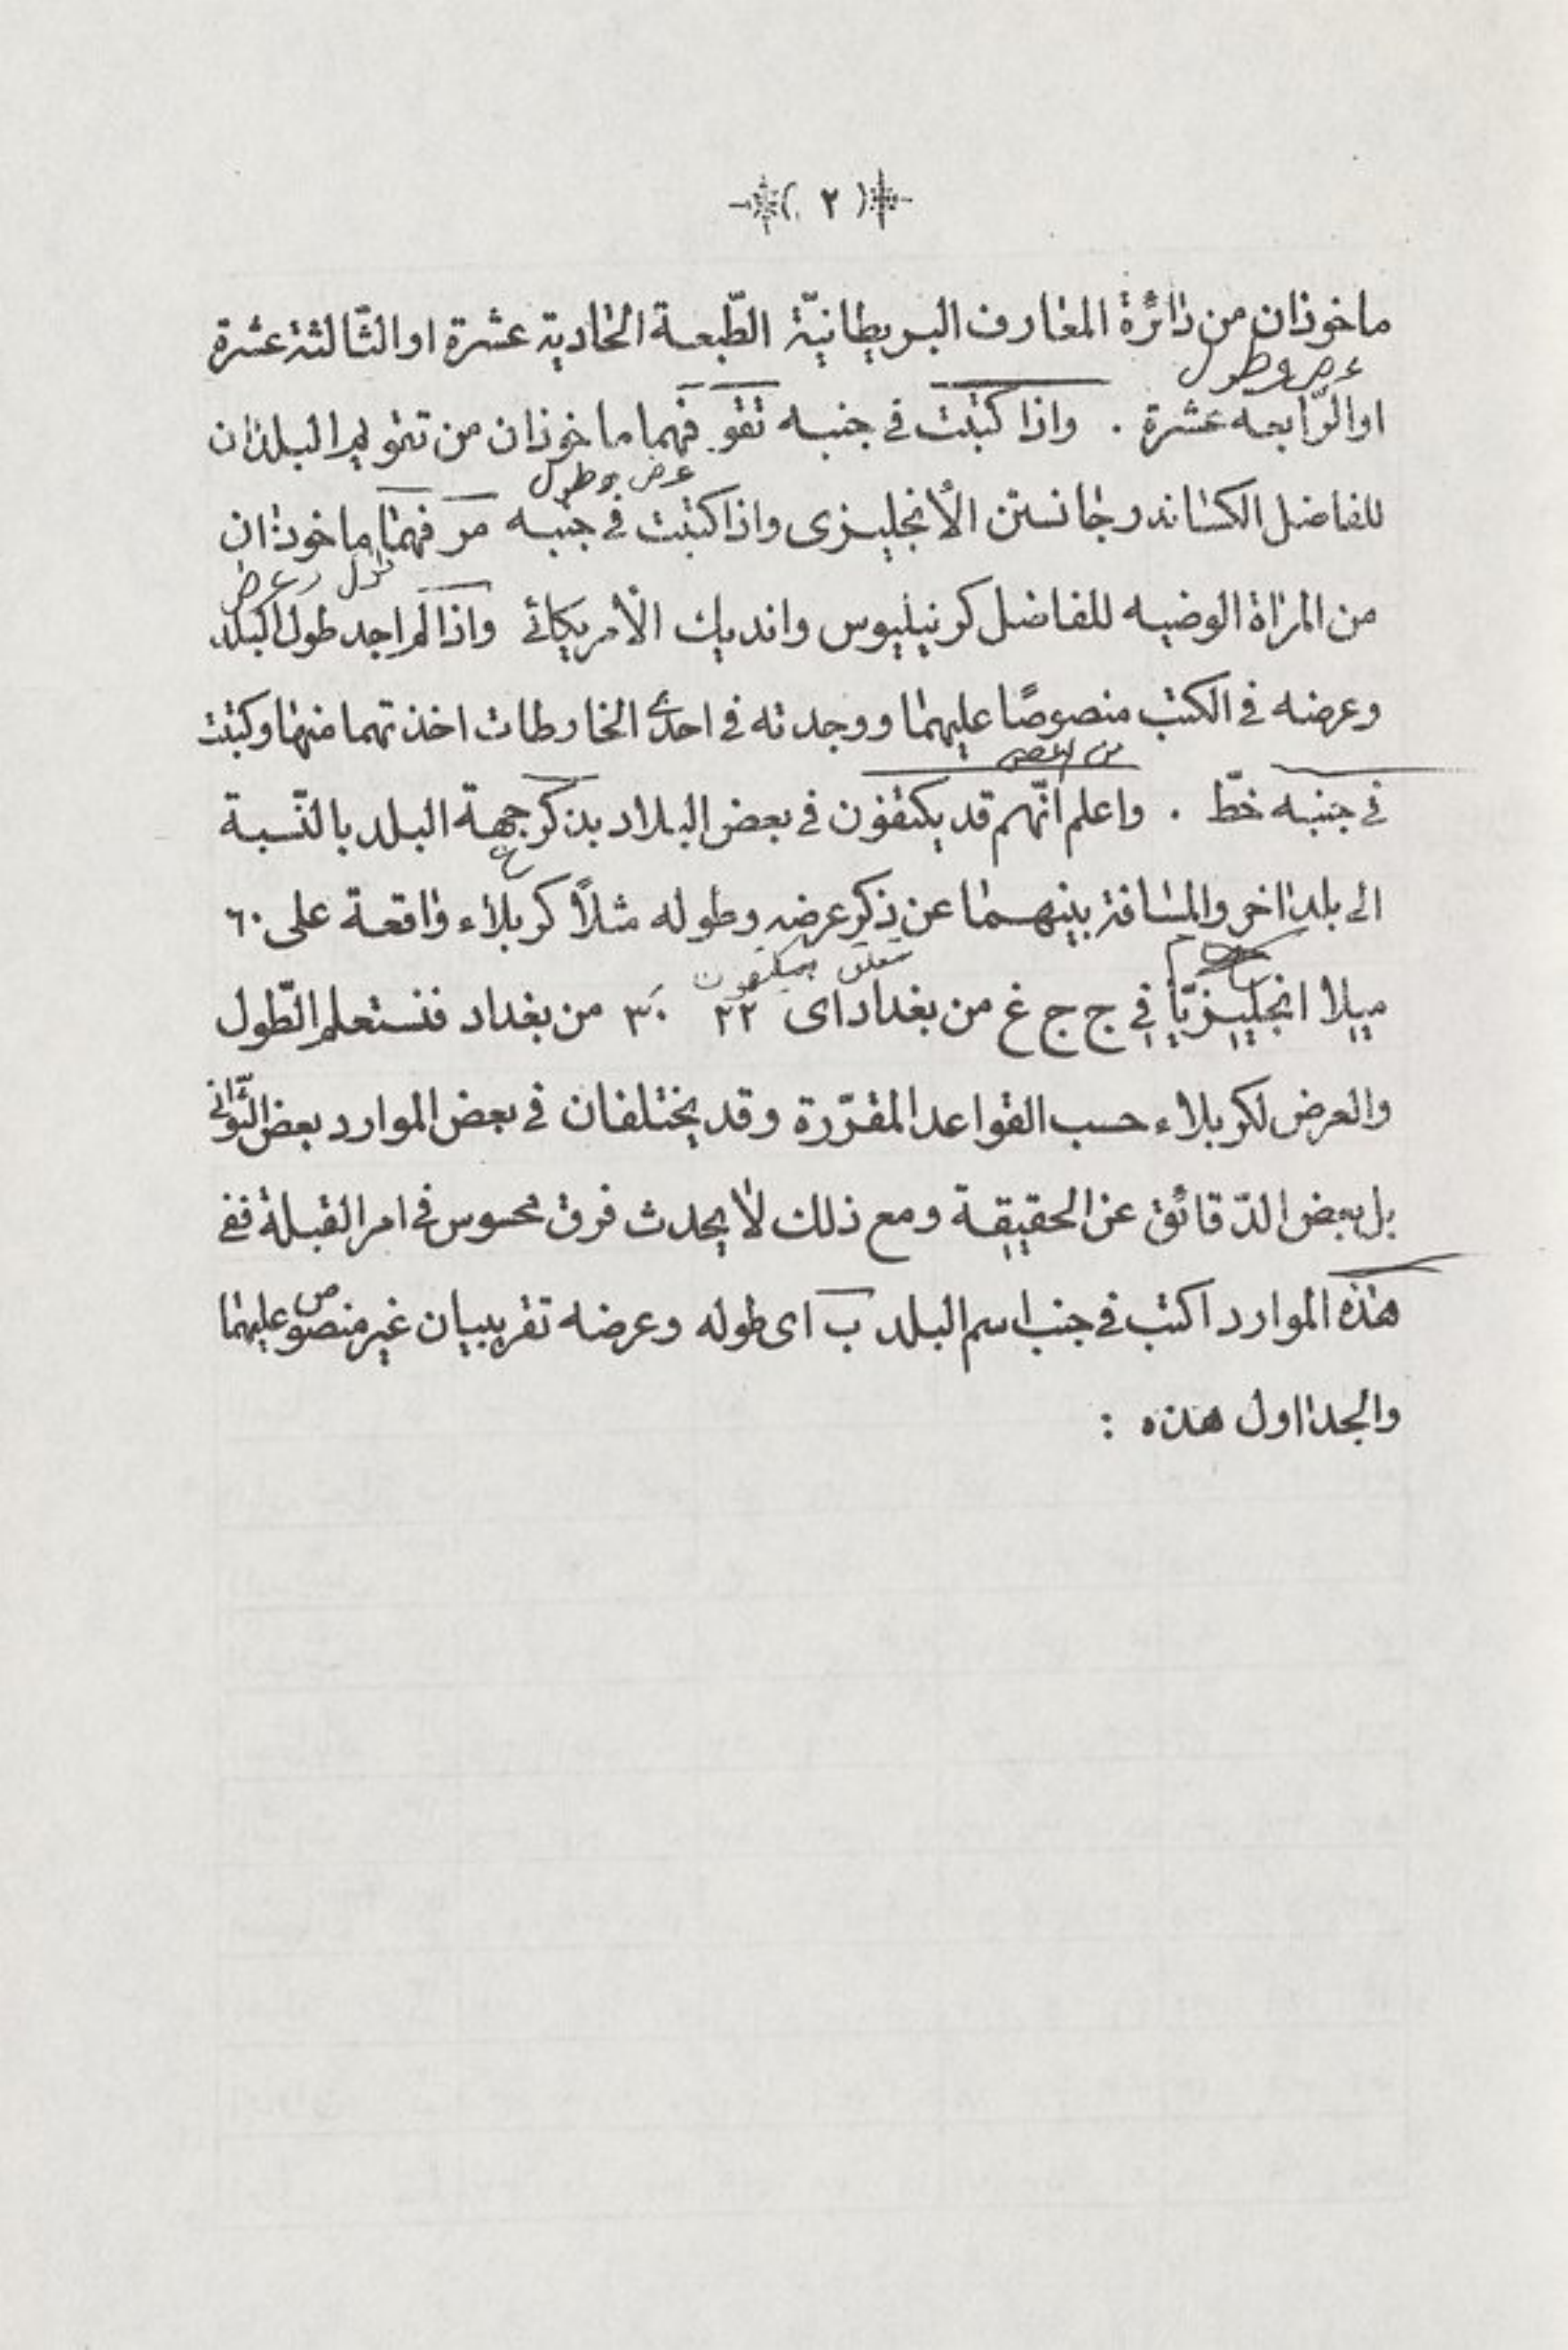 ( ٢ )
ماخوذان من دائرة المعارف البريطانيّة الطّبعة الحادية عشرة او الثّالثة عشرة
عرض و طول
او الرّابعه عشرة . واذا كتبت فى جنبه تقو فهما ماخوذان من تقويم البلدان
عرض و طول
للفاضل الكساندر جانستن الأنجليزى واذا كتبت فى جنبه مر فهما ماخوذان
طول و عرض
من المرٰاة الوضيه للفاضل كرنيليوس وانديك الأمريكائى واذا لم اجد طول البلد
وعرضه فى الكتب منصوصًا عليهما ووجدته فى احدى الخارطات اخذتهما منها وكتبت
فى جنبه خطّ . واعلم انّهم قد يكتفون فى بعض البلاد بذكر جهة البلد بالنّسبة
الى بلد اخر والمسافة بينهما عن ذكر عرضه وطوله مثلاً كربلاء واقعة على ٦٠
متعلق بيكتفون
ميلا انجليزيّا فى ج ج غ من بغداد اى ٢٢ ٣٠ من بغداد فنستعلم الطّول
والعرض لكربلاء حسب القواعد المقرّرة وقد يختلفان فى بعض الموارد بعض الثّوانى
بل بعض الدّقائق عن الحقيقة ومع ذلك لا يحدث فرق محسوس فى امر القبلة ففى
هذه الموارد اكتب فى جنب اسم البلد ب اى طوله وعرضه تقريبيان غير منصوص عليهما
والجداول هذه :